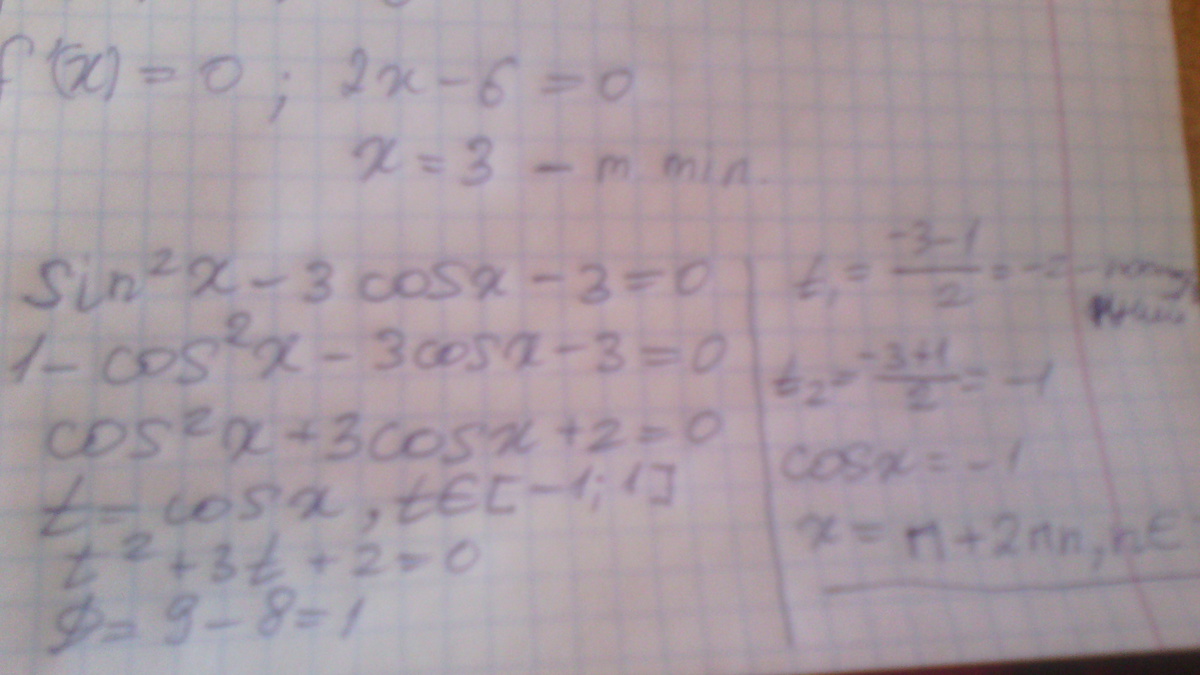 f'(x) = 0 ; 2x - 6 = 0
x = 3 - т. min.
sin²x - 3 cosx - 3 = 0
1 - cos²x - 3cosx - 3 = 0
cos²x + 3cosx + 2 = 0
t = cosx, t∈[-1; 1]
t² + 3t + 2 = 0
D = 9 - 8 = 1
t₁ = (-3-1)/2 = -2 -
t₂ = (-3+1)/2 = -1
cosx = -1
x = π + 2πn, n∈